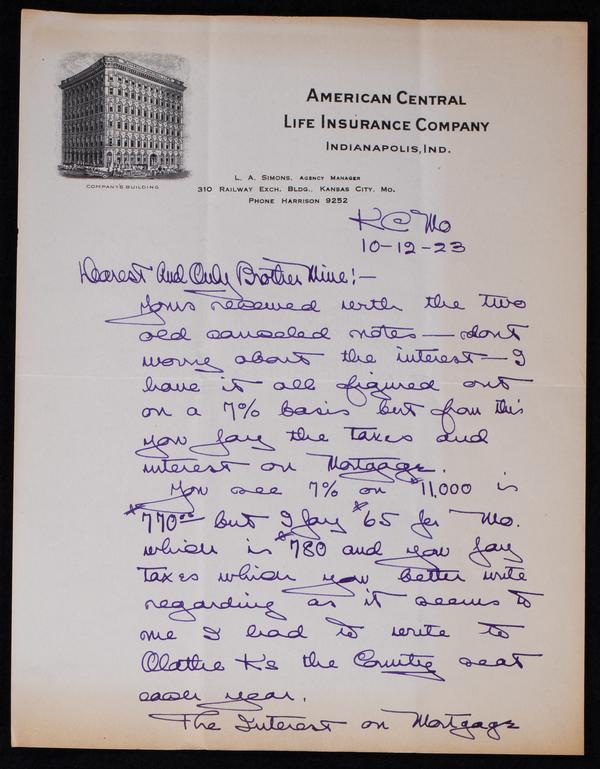 AMERICAN CENTRAL
LIFE INSURANCE COMPANY
INDIANAPOLIS, IND.
COMPANY'S BUILDING
L. A. SIMONS, AGENCY MANAGER
310 RAILWAY EXCH. BLDG., KANSAS CITY, MO.
PHONE HARRISON 9252
KC Mo
10-12-23
Dearest And Only Brother Mine!-
Yours received with the two
old canceled notes — dont
worry about the interest — I
have it all figured out
on a 7% basis but from this
you pay the taxes and
interest on Mortgage.
You see 7% on $11,000 is
$770.00 but I pay $65 per Mo.
which is $780 and you pay
taxes which you better write
regarding as it seems to
me I had to write to
Olathe Ks the County seat
each year.
The Interest on Mortgage